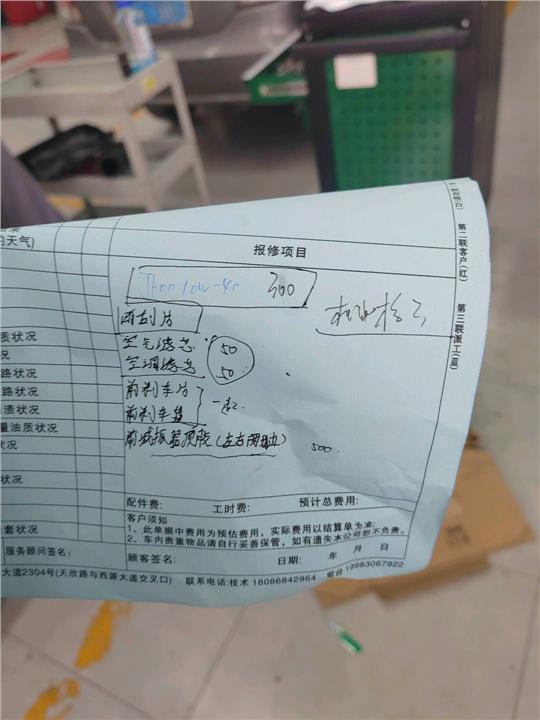 的天气)
报修项目
300
雨刮片
质状况
空气滤芯 50
况
空调滤芯 50
路状况
前刹车片
路状况
前刹车盘
渍状况
量油质状况
前减振器顶胶(左右两边) 500.
状况
配件费: 工时费: 预计总费用:
客户须知
1、此单据中费用为预估费用，实际费用以结算单为准;
套状况
2、车内贵重物品请自行妥善保管，如有遗失本公司恕不负责。
服务顾问签名: 顾客签名: 日期: 年 月 日
大道2304号(天欣路与西源大道交叉口) 联系电话:技术 18086842964 前台 19983067922
一联存根(白)
第二联客户(红)
第三联派工(蓝)